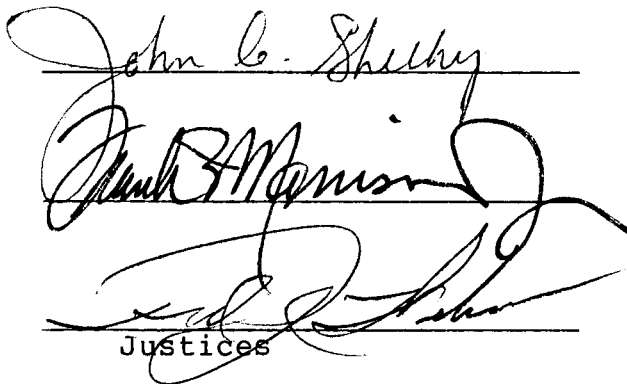 John C. Sheehy
Frank B. Morrison Jr
Justices